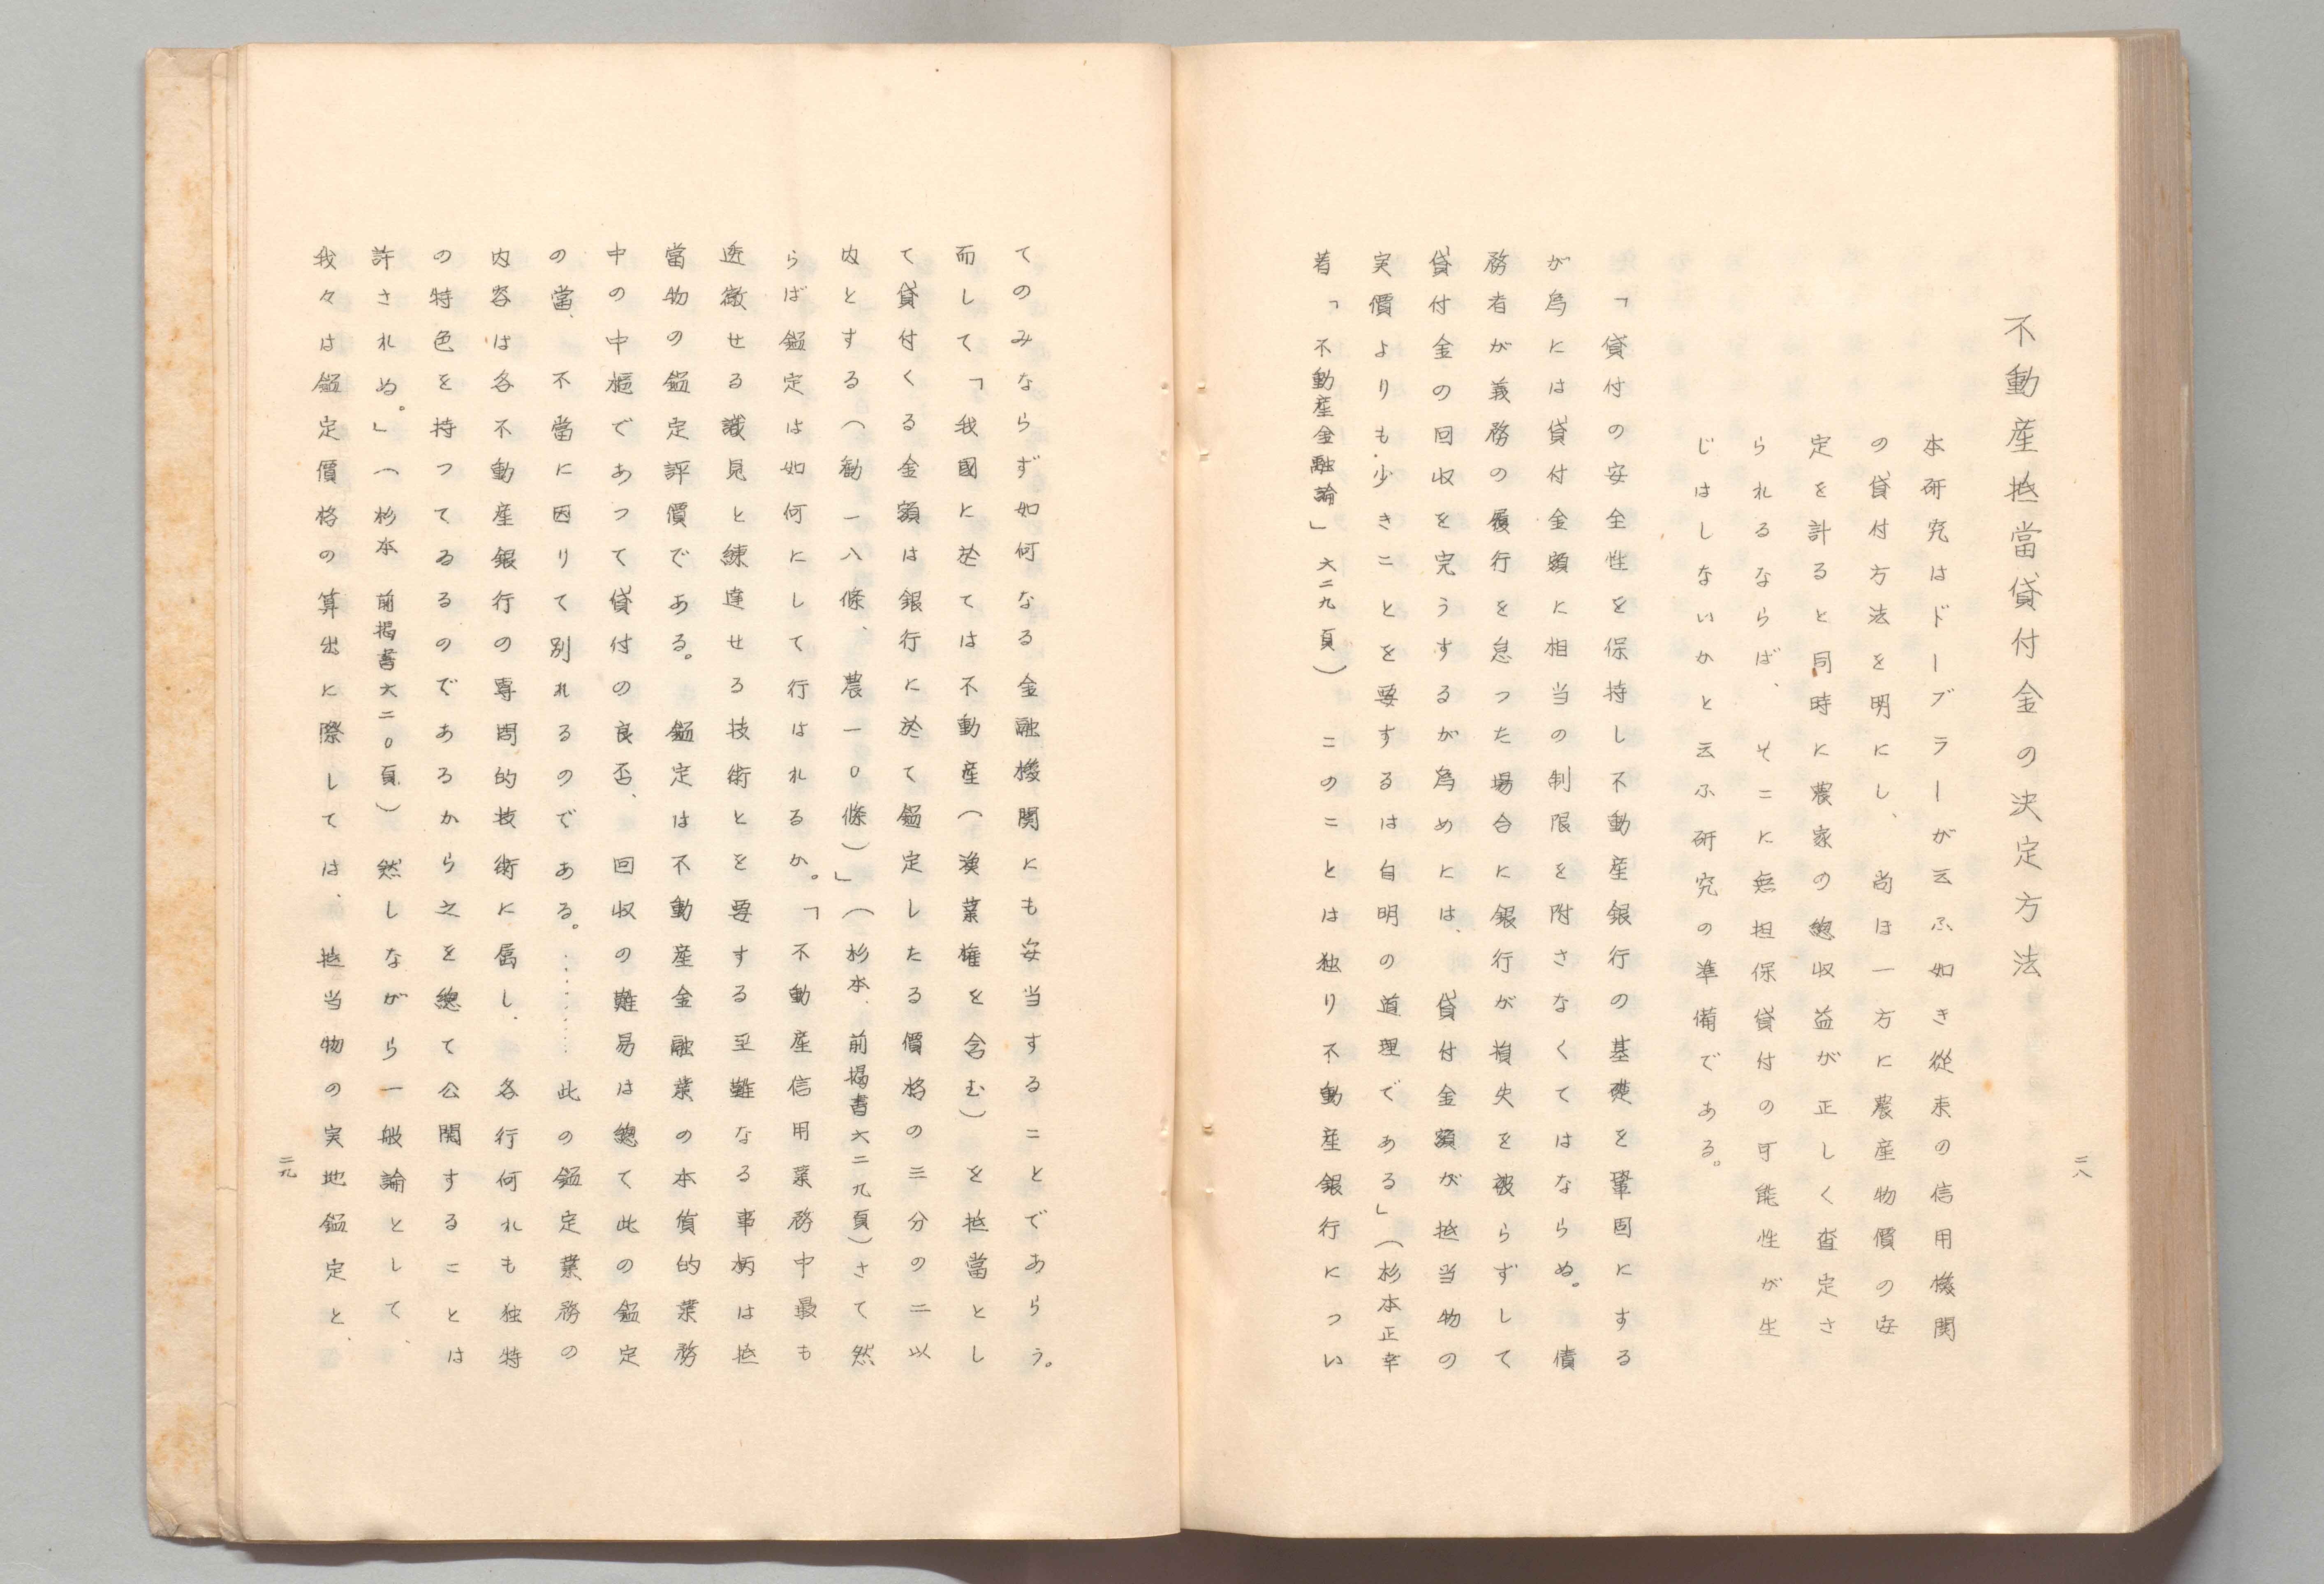 二八
不動産抵當貸付金の決定方法
本研究はドーブラーが云ふ如き從来の信用機関
の貸付方法を明にし、尚ほ一方に農産物價の安
定を計ると同時に農家の總収益が正しく査定さ
られるならば、そこに無担保貸付の可能性が生
じはしないかと云ふ研究の準備である。
「貸付の安全性を保持し不動産銀行の基礎を鞏固にする
が為には貸付金額に相当の制限を附さなくてはならぬ。債
務者が義務の履行を怠った場合に銀行が損失を被らずして
貸付金の回収を完うするが為めには、貸付金額が抵当物の
実價よりも少きことを要するは自明の道理である」（杉本正幸
着「不動産金融論」六二九頁）このことは独り不動産銀行につい
てのみならず如何なる金融機関にも安当することであらう。
而して「我國に於ては不動産（漁業権を含む）を抵當とし
て貸付くる金額は銀行に於て鑑定したる價格の三分の二以
内とする（勧一八條、農一〇條）」（杉本、前揭書六二九頁）さて然
らば鑑定は如何にして行はれるか。「不動産信用業務中最も
透徹せる識見と練達せる技術とを要する至難なる事柄は抵
當物の鑑定評價である。鑑定は不動産金融業の本質的業務
中の中樞であつて貸付の良否、回収の難易は總て此の鑑定
の當、不當に因りて別れるのである。…………此の鑑定業務の
内容は各不動産銀行の専問的技術に屬し、各行何れも独特
の特色を持つてるるのであるから之を總て公開することは
許されぬ。」（杉本 前揭書六二〇頁）然しながら一般論として、
我々は鑑定價格の算出に際しては、抵当物の実地鑑定と、
二九